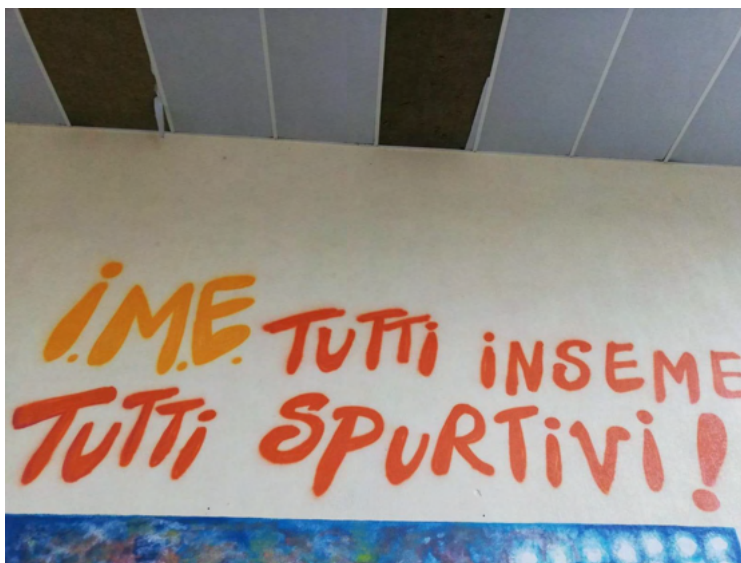 I.M.E. TUTTi iNSEME
TUTTi SPuRTiVi !